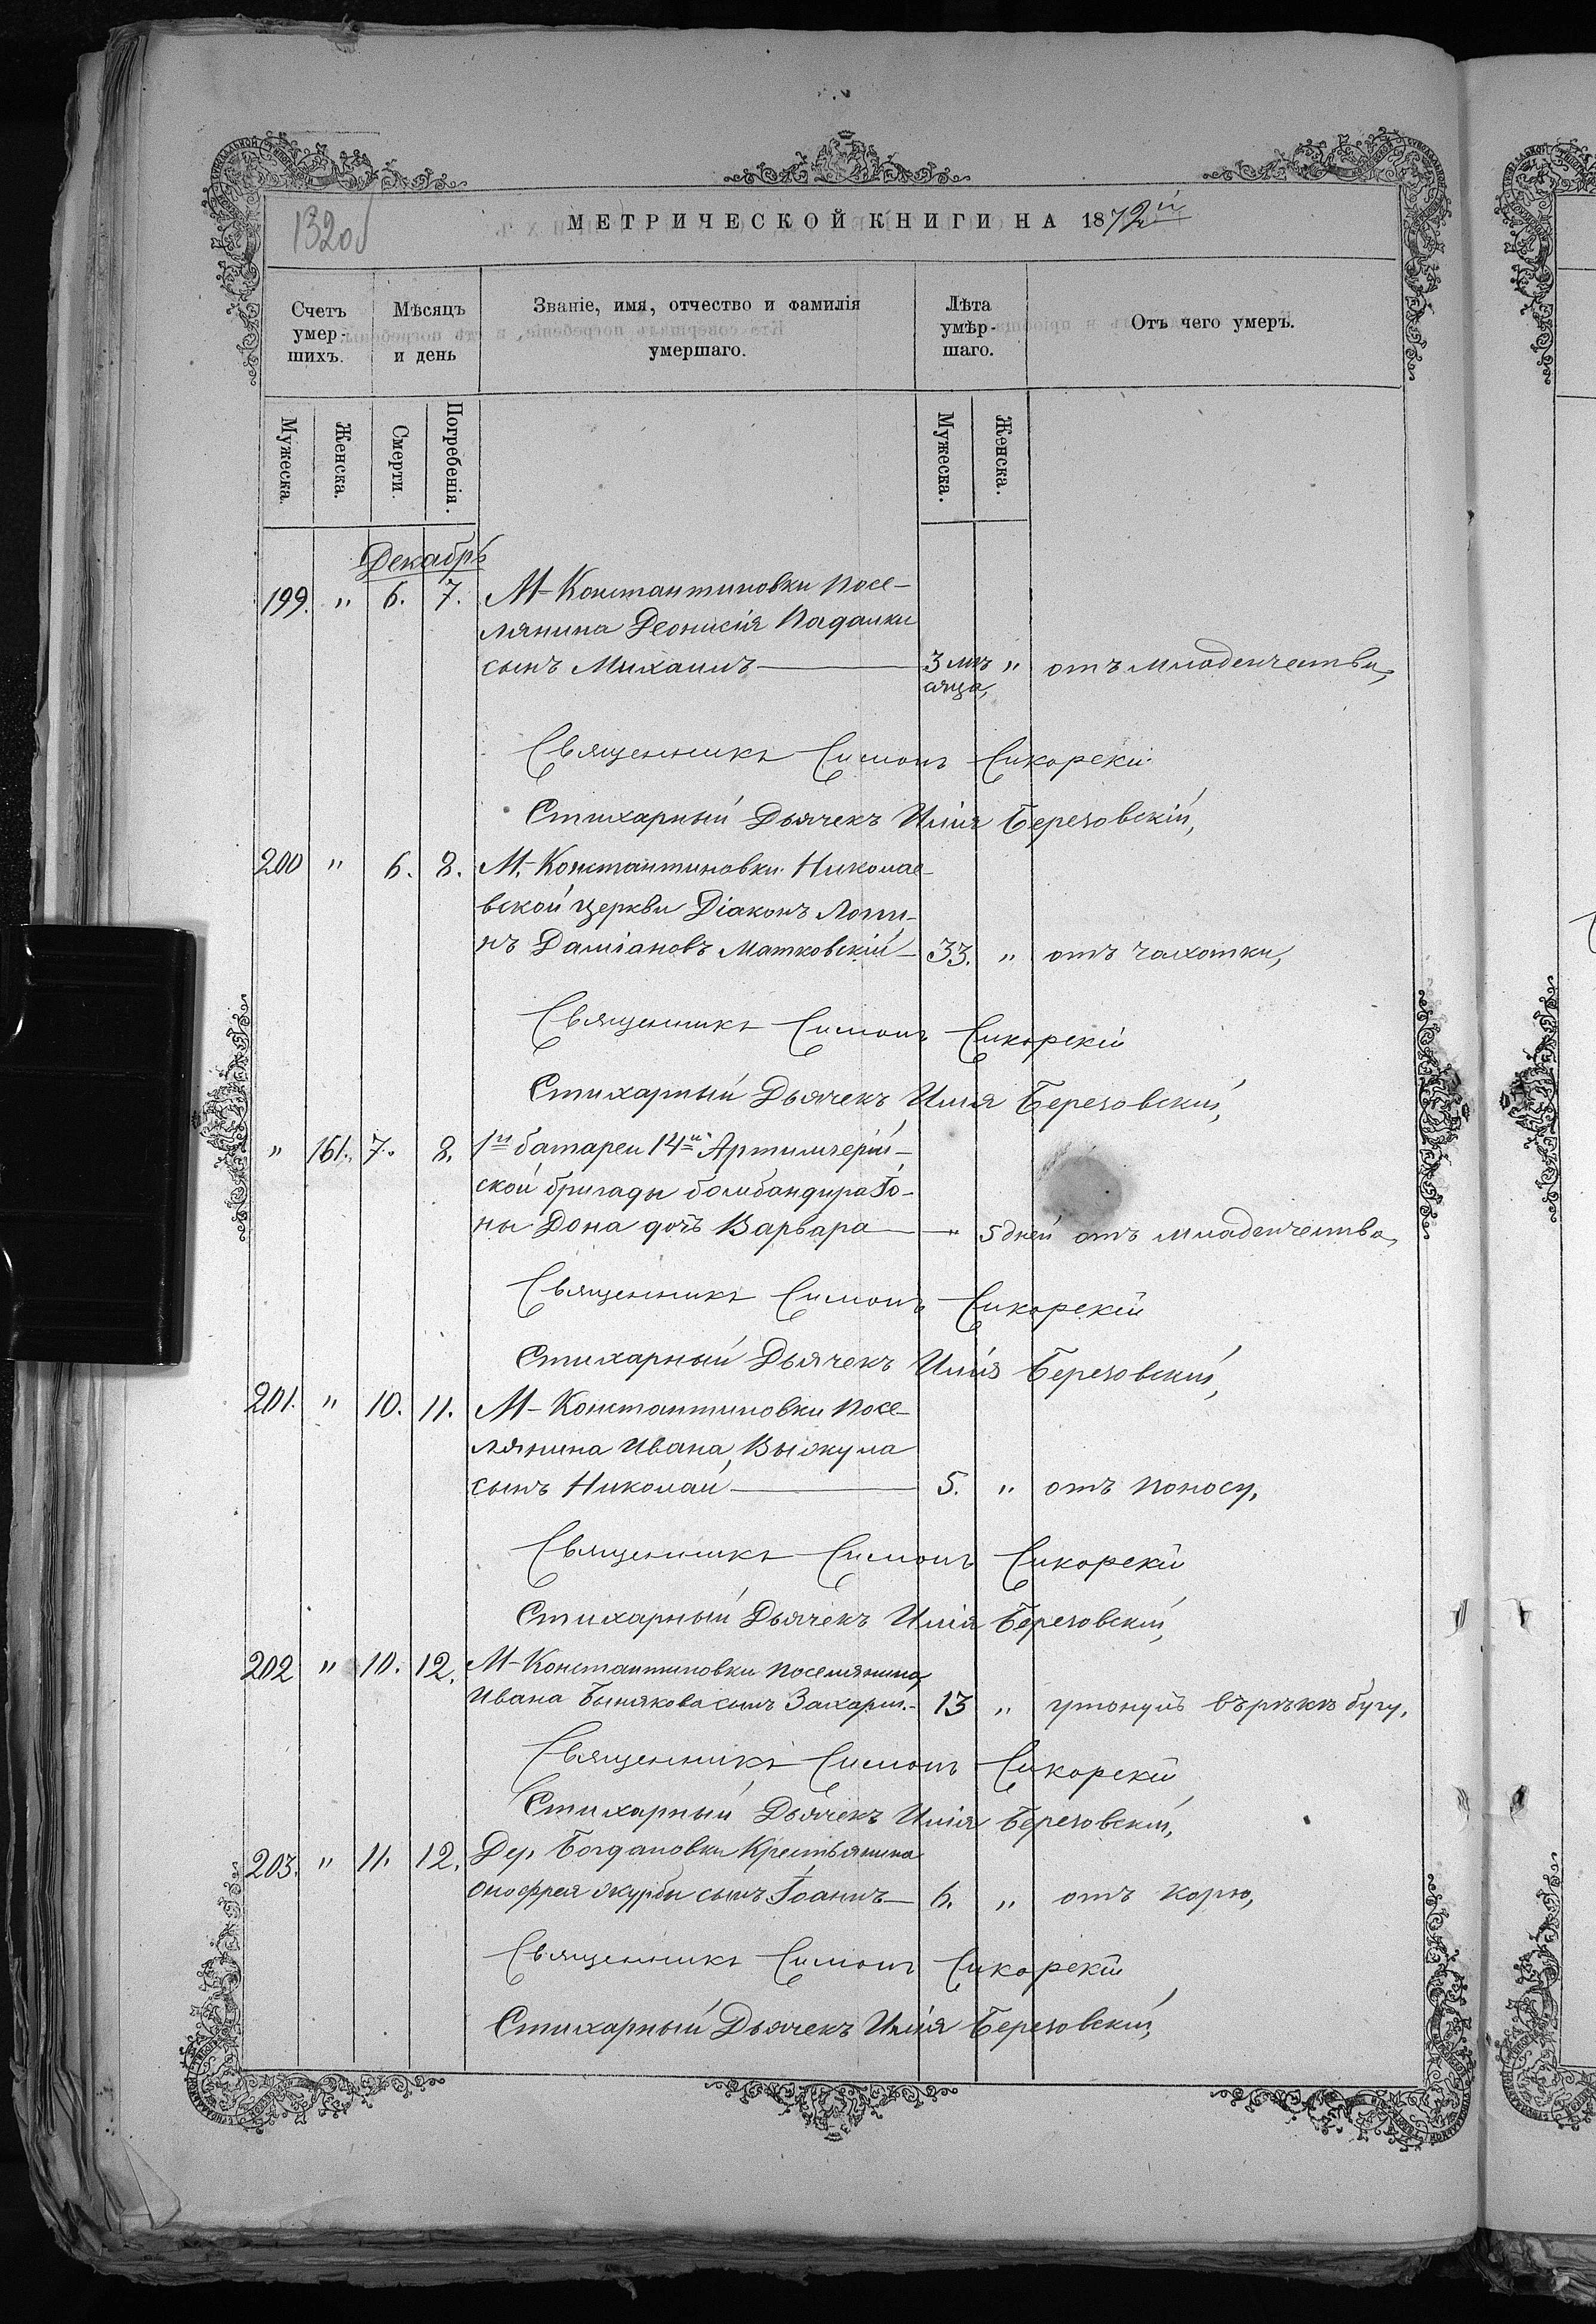 132об
МЕТРИЧЕСКОЙ КНИГИ НА 1872й
Счетъ умер-шихъ.
Мѣсяцъ и день
Званіе, имя, отчество и фамилія умершаго.
Лѣта умѣр-шаго.
Отъ чего умеръ.
Мужеска.
Женска.
Смерти.
Погребенія.
Мужеска.
Женска.
Декабрь
199. " 6. 7. М-Константиновки посе-
лянина Деонисія
сынъ Михаилъ — 3 мѣ- " отъ младенчества,
сяца,
Священникъ Симонъ Сикорскій
Стихарный Дьячекъ Илія Березовскій,
200 " 6. 8. М.-Константиновки Николае-
вской церкви Діаконъ Логи-
нъ Даміановъ Матковскій — 33. " отъ чахотки,
Священникъ Симонъ Сикорскій
Стихарный Дьячекъ Илія Березовскій,
" 161. 7. 8. 1й батареи 14й Артилерій-
ской бригады бомбандира Іо-
ны Дона дочь Варвара — " 5 дней отъ младенчества,
Священникъ Симонъ Сикорскій
Стихарный Дьячекъ Илія Березовскій,
201. " 10. 11. М-Константиновки посе-
лянина Ивана
сынъ Николай — 5. " отъ поносу,
Священникъ Симонъ Сикорскій
Стихарный Дьячекъ Илія Березовскій,
202 " 10. 12. М-Константиновки поселянина
Ивана Бынякова сынъ Захарій.- 13 " утонулъ въ рѣкѣ бугу,
Священникъ Симонъ Сикорскій
Стихарный Дьячекъ Илія Березовскій,
203. " 11. 12. Дер. Богдановки Крестьянина
Онофрея сынъ Іоаннъ — 6. " отъ корю,
Священникъ Симонъ Сикорскій
Стихарный Дьячекъ Илія Березовскій,